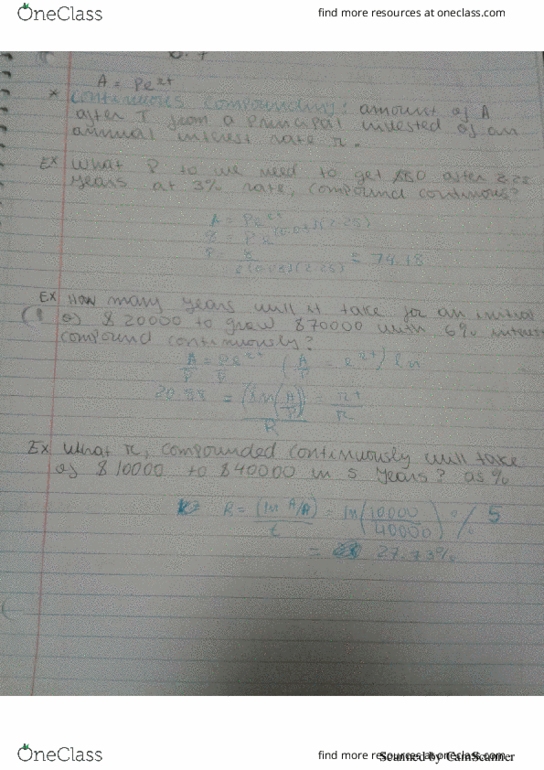 OneClass
find more resources at oneclass.com
A = Pe^rt
* Continuous Compounding: amount of A
after T from a Principal invested of an
annual interest rate r.
Ex What P to we need to get after 2.25
years at 3% rate, compound continous?
A = Pe^rt
= Pe^(0.03)(2.25)
e(0.03)(2.25) = 74.18
Ex How many years will it take for an initial
of $20000 to grow $70000 with 6% interest
compound continuously?
A/P = Pe^rt/P (A/P = e^rt) ln
20.88 = (ln(A/P))/R = rt/r
Ex What r, compounded continuously will take
of $10000 to $40000 in 5 years? as %
R = (ln A/A)/t = ln(10000/40000) % 5
= 27.73%
OneClass
find more resources at oneclass.com
Scanned by CamScanner